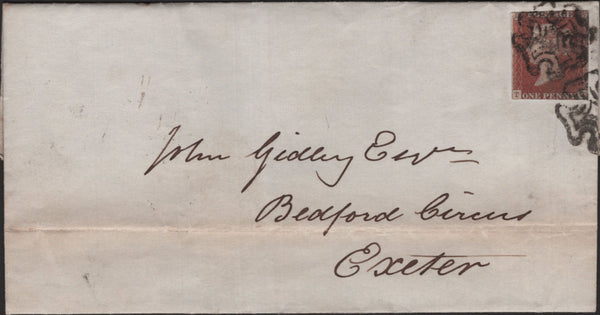 POSTAGE
ONE PENNY
John Gidley Esqre
Bedford Circus
Exeter